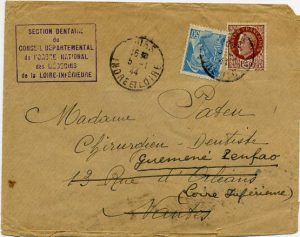 SECTION DENTAIRE
du
CONSEIL DÉPARTEMENTAL
de l'ORDRE NATIONAL
des MÉDECINS
de la LOIRE-INFÉRIEURE
16 30
5 - 1
44
INDRE ET LOIRE
Madame Pateu
Chirurgien-Dentiste
Guemené Penfao
13 Rue d'Orléans
(Loire Inférieure)
Nantes